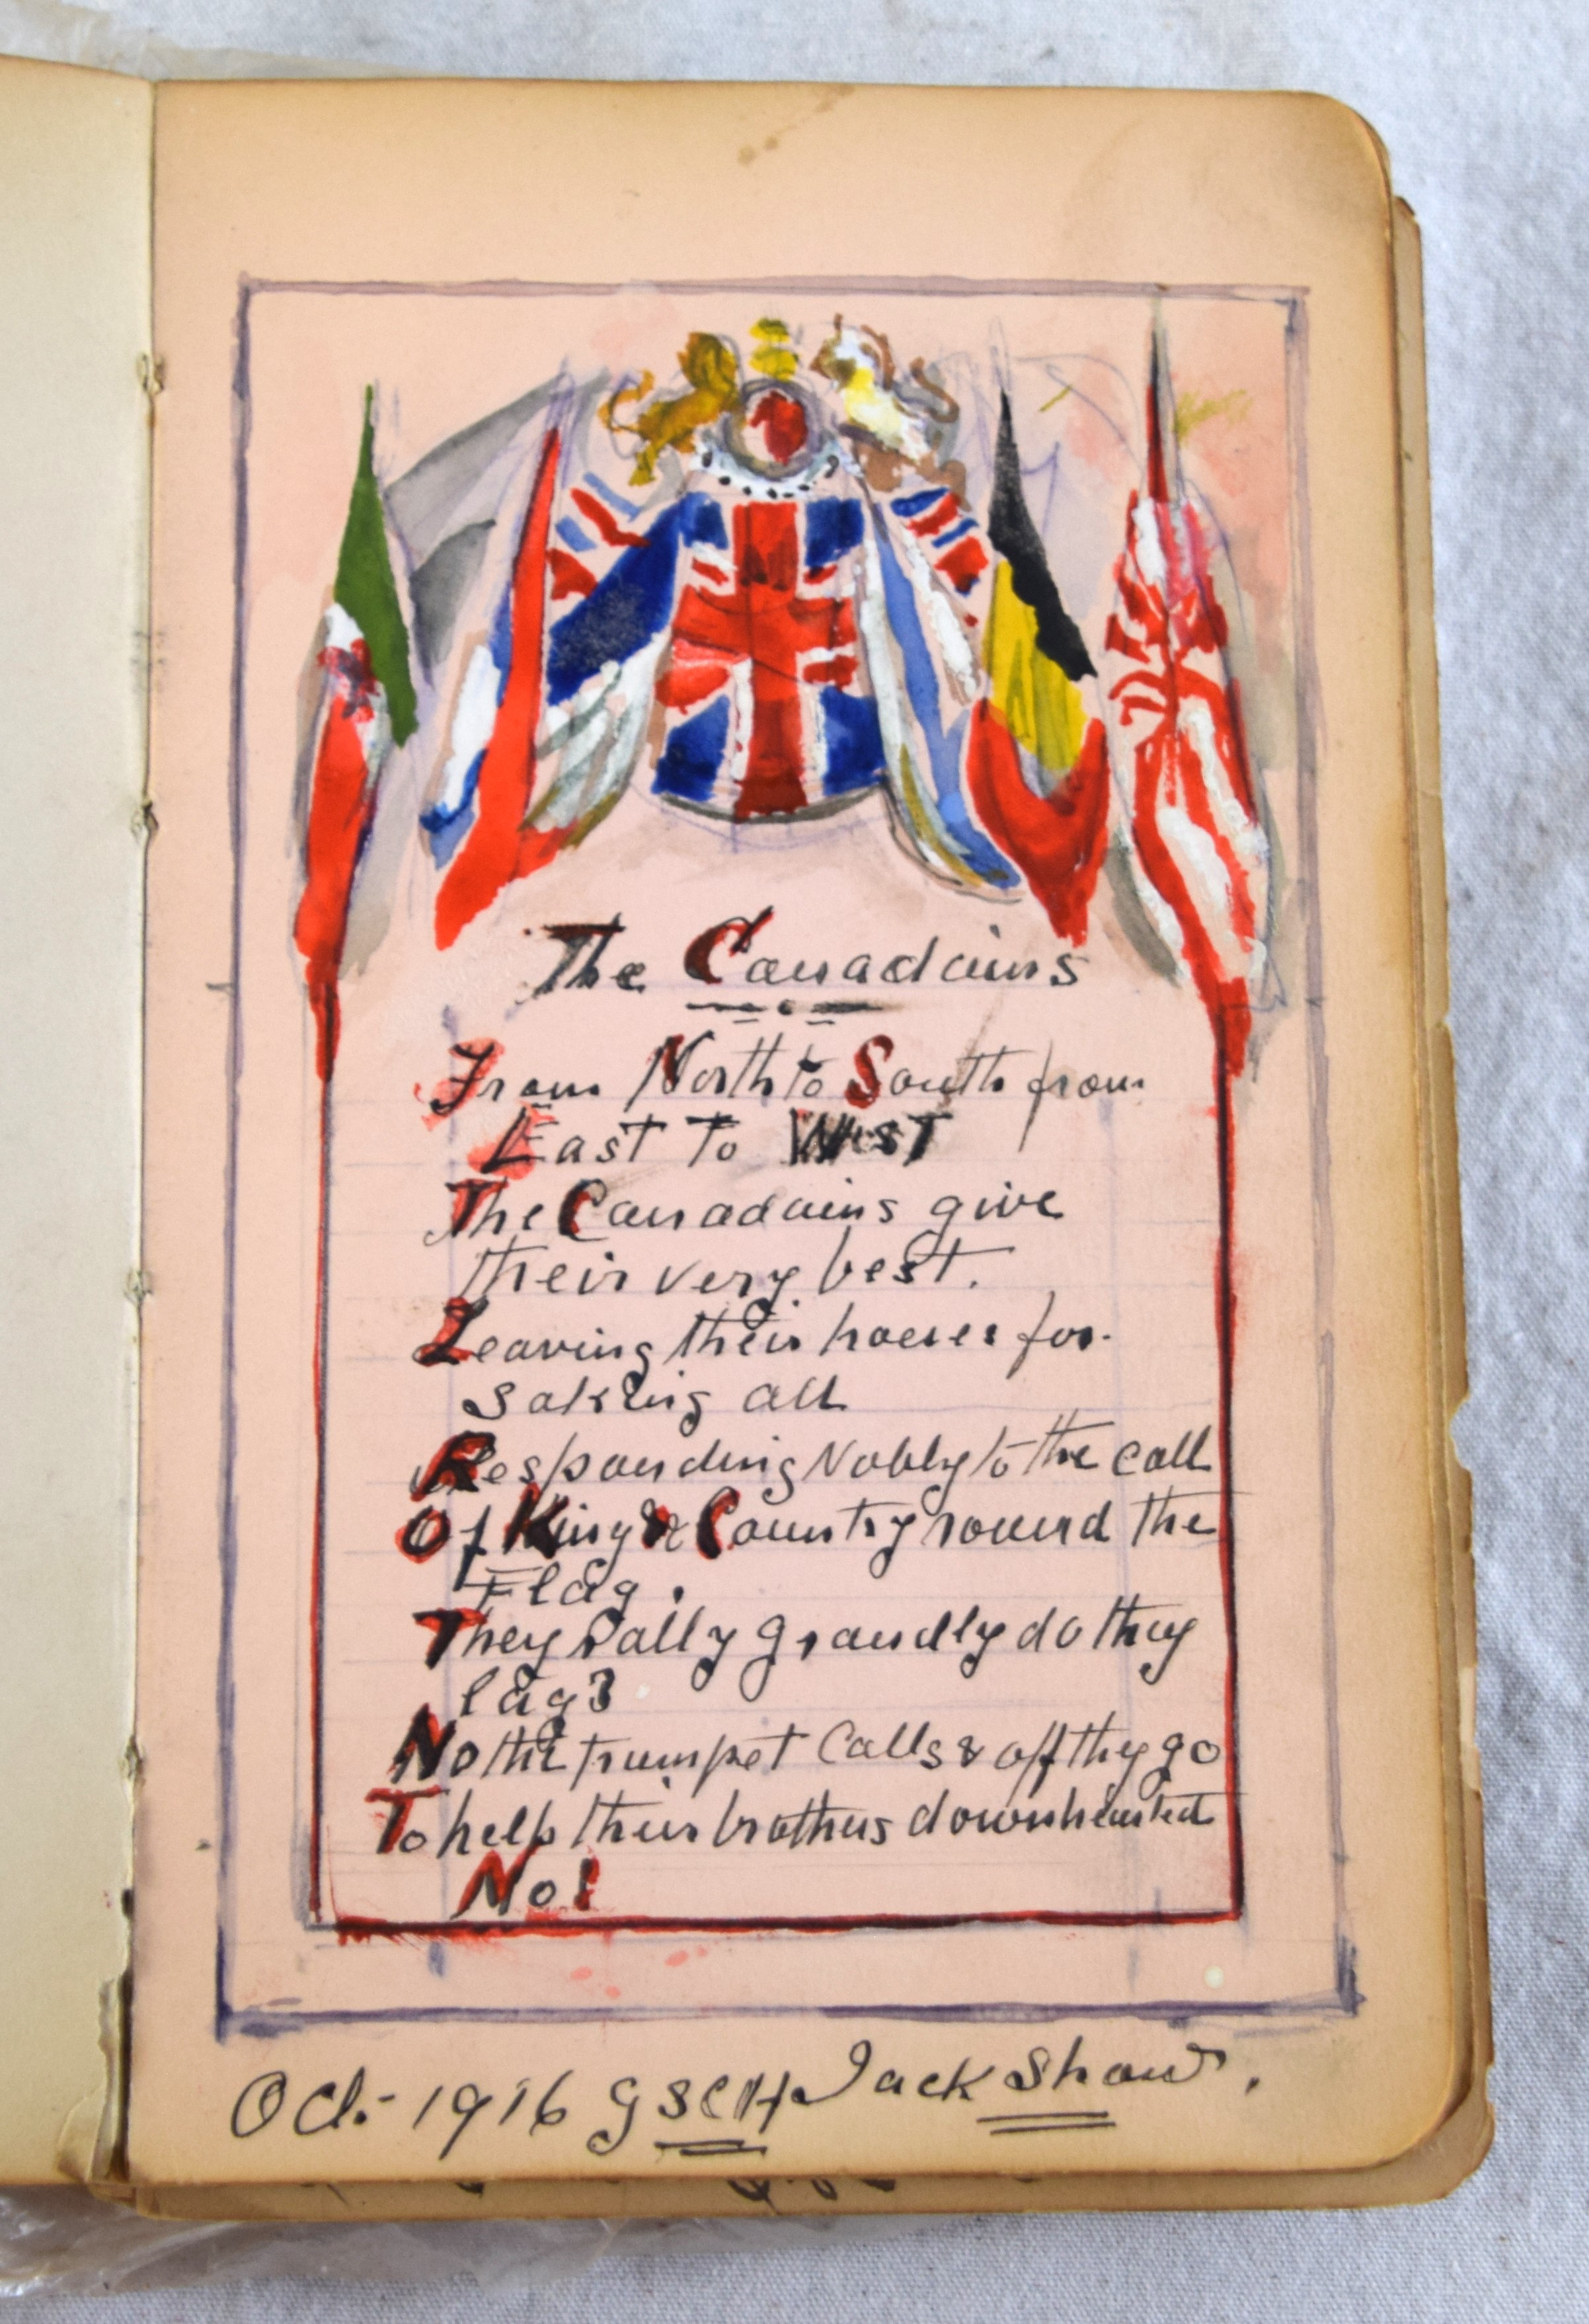 The Canadains
From North to South from
East To West
The Canadains give
their very best.
Leaving their homes for-
saking all
Responding Nobly to the call
Of King & Country round the
Flag.
They rally grandly do they
lag?
No the trumpet Calls & off they go
To help their brothers downhearted
No!
Oct:- 1916 GSCH Jack Shaw.